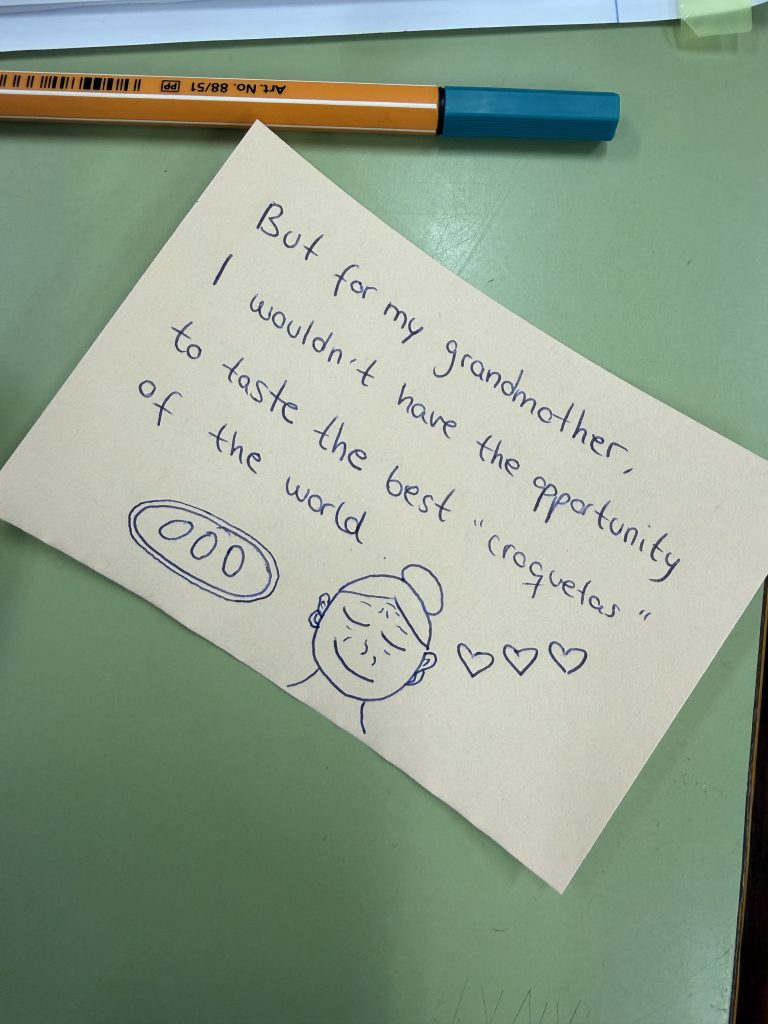 Art. No. 88/51 PP
But for my grandmother,
I wouldn't have the opportunity
to taste the best "croquetas"
of the world